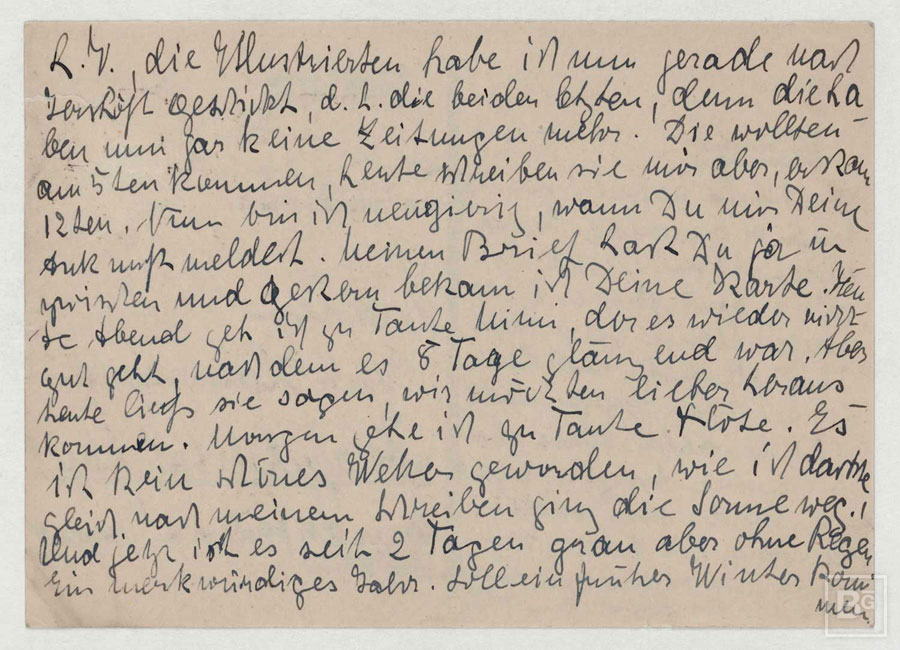 L. V., die Illustrierten habe ich nun gerade nach
geschickt, d. h. die beiden letzten, denn die ha
ben nun gar keine Zeitungen mehr. Die wollten
am 5ten kommen, heute schreiben sie mir aber, erst am
12ten. Nun bin ich neugierig, wann Du mir Deine
Ankunft meldest. Meinen Brief hast Du ja in
zwischen und gestern bekam ich Deine Karte. Heu
te Abend geh ich zu Tante Mimi, der es wieder nicht
gut geht, nachdem es 8 Tage glänzend war. Aber
heute liess sie sagen, wir möchten lieber heraus
kommen. Morgen gehe ich zu Tante Es
ist kein schönes Wetter geworden, wie ich dachte
gleich nach meinem Schreiben ging die Sonne weg.!
Und jetzt ist es seit 2 Tagen grau aber ohne Regen
Ein merkwürdiges Jahr. Soll ein früher Winter kom
men.
BG